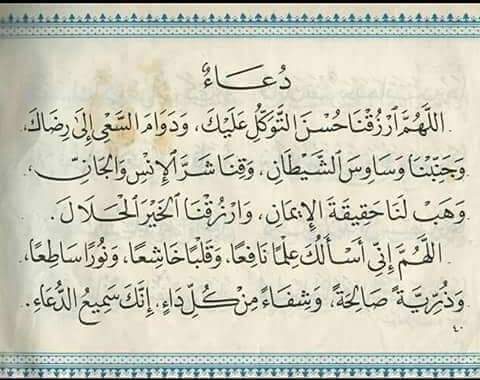 دُعَاءٌ
اللَّهُمَّ ٱرْزُقْنَا حُسْنَ التَّوَكُّلِ عَلَيْكَ، وَدَوَامَ السَّعْيِ إِلَى رِضَاكَ،
وَجَنِّبْنَا وَسَاوِسَ الشَّيْطَانِ، وَقِنَا شَرَّ الإِنْسِ وَالجَانِّ،
وَهَبْ لَنَا حَقِيقَةَ الإِيمَانِ، وَارْزُقْنَا الخَيْرَ الحَلَالَ.
اللَّهُمَّ إِنِّي أَسْأَلُكَ عِلْمًا نَافِعًا، وَقَلْبًا خَاشِعًا، وَنُورًا سَاطِعًا،
وَذُرِّيَّةً صَالِحَةً، وَشِفَاءً مِنْ كُلِّ دَاءٍ، إِنَّكَ سَمِيعُ الدُّعَاءِ.
٤٠